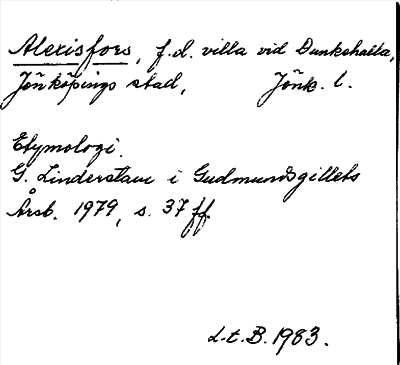 Alexisfors, f.d. villa vid Dunkehalla,
Jönköpings stad, Jönk. l.
Etymologi.
G. Linderstam i Gudmundsgillets
Årsb. 1979, s. 37 ff
L.t.B. 1983.